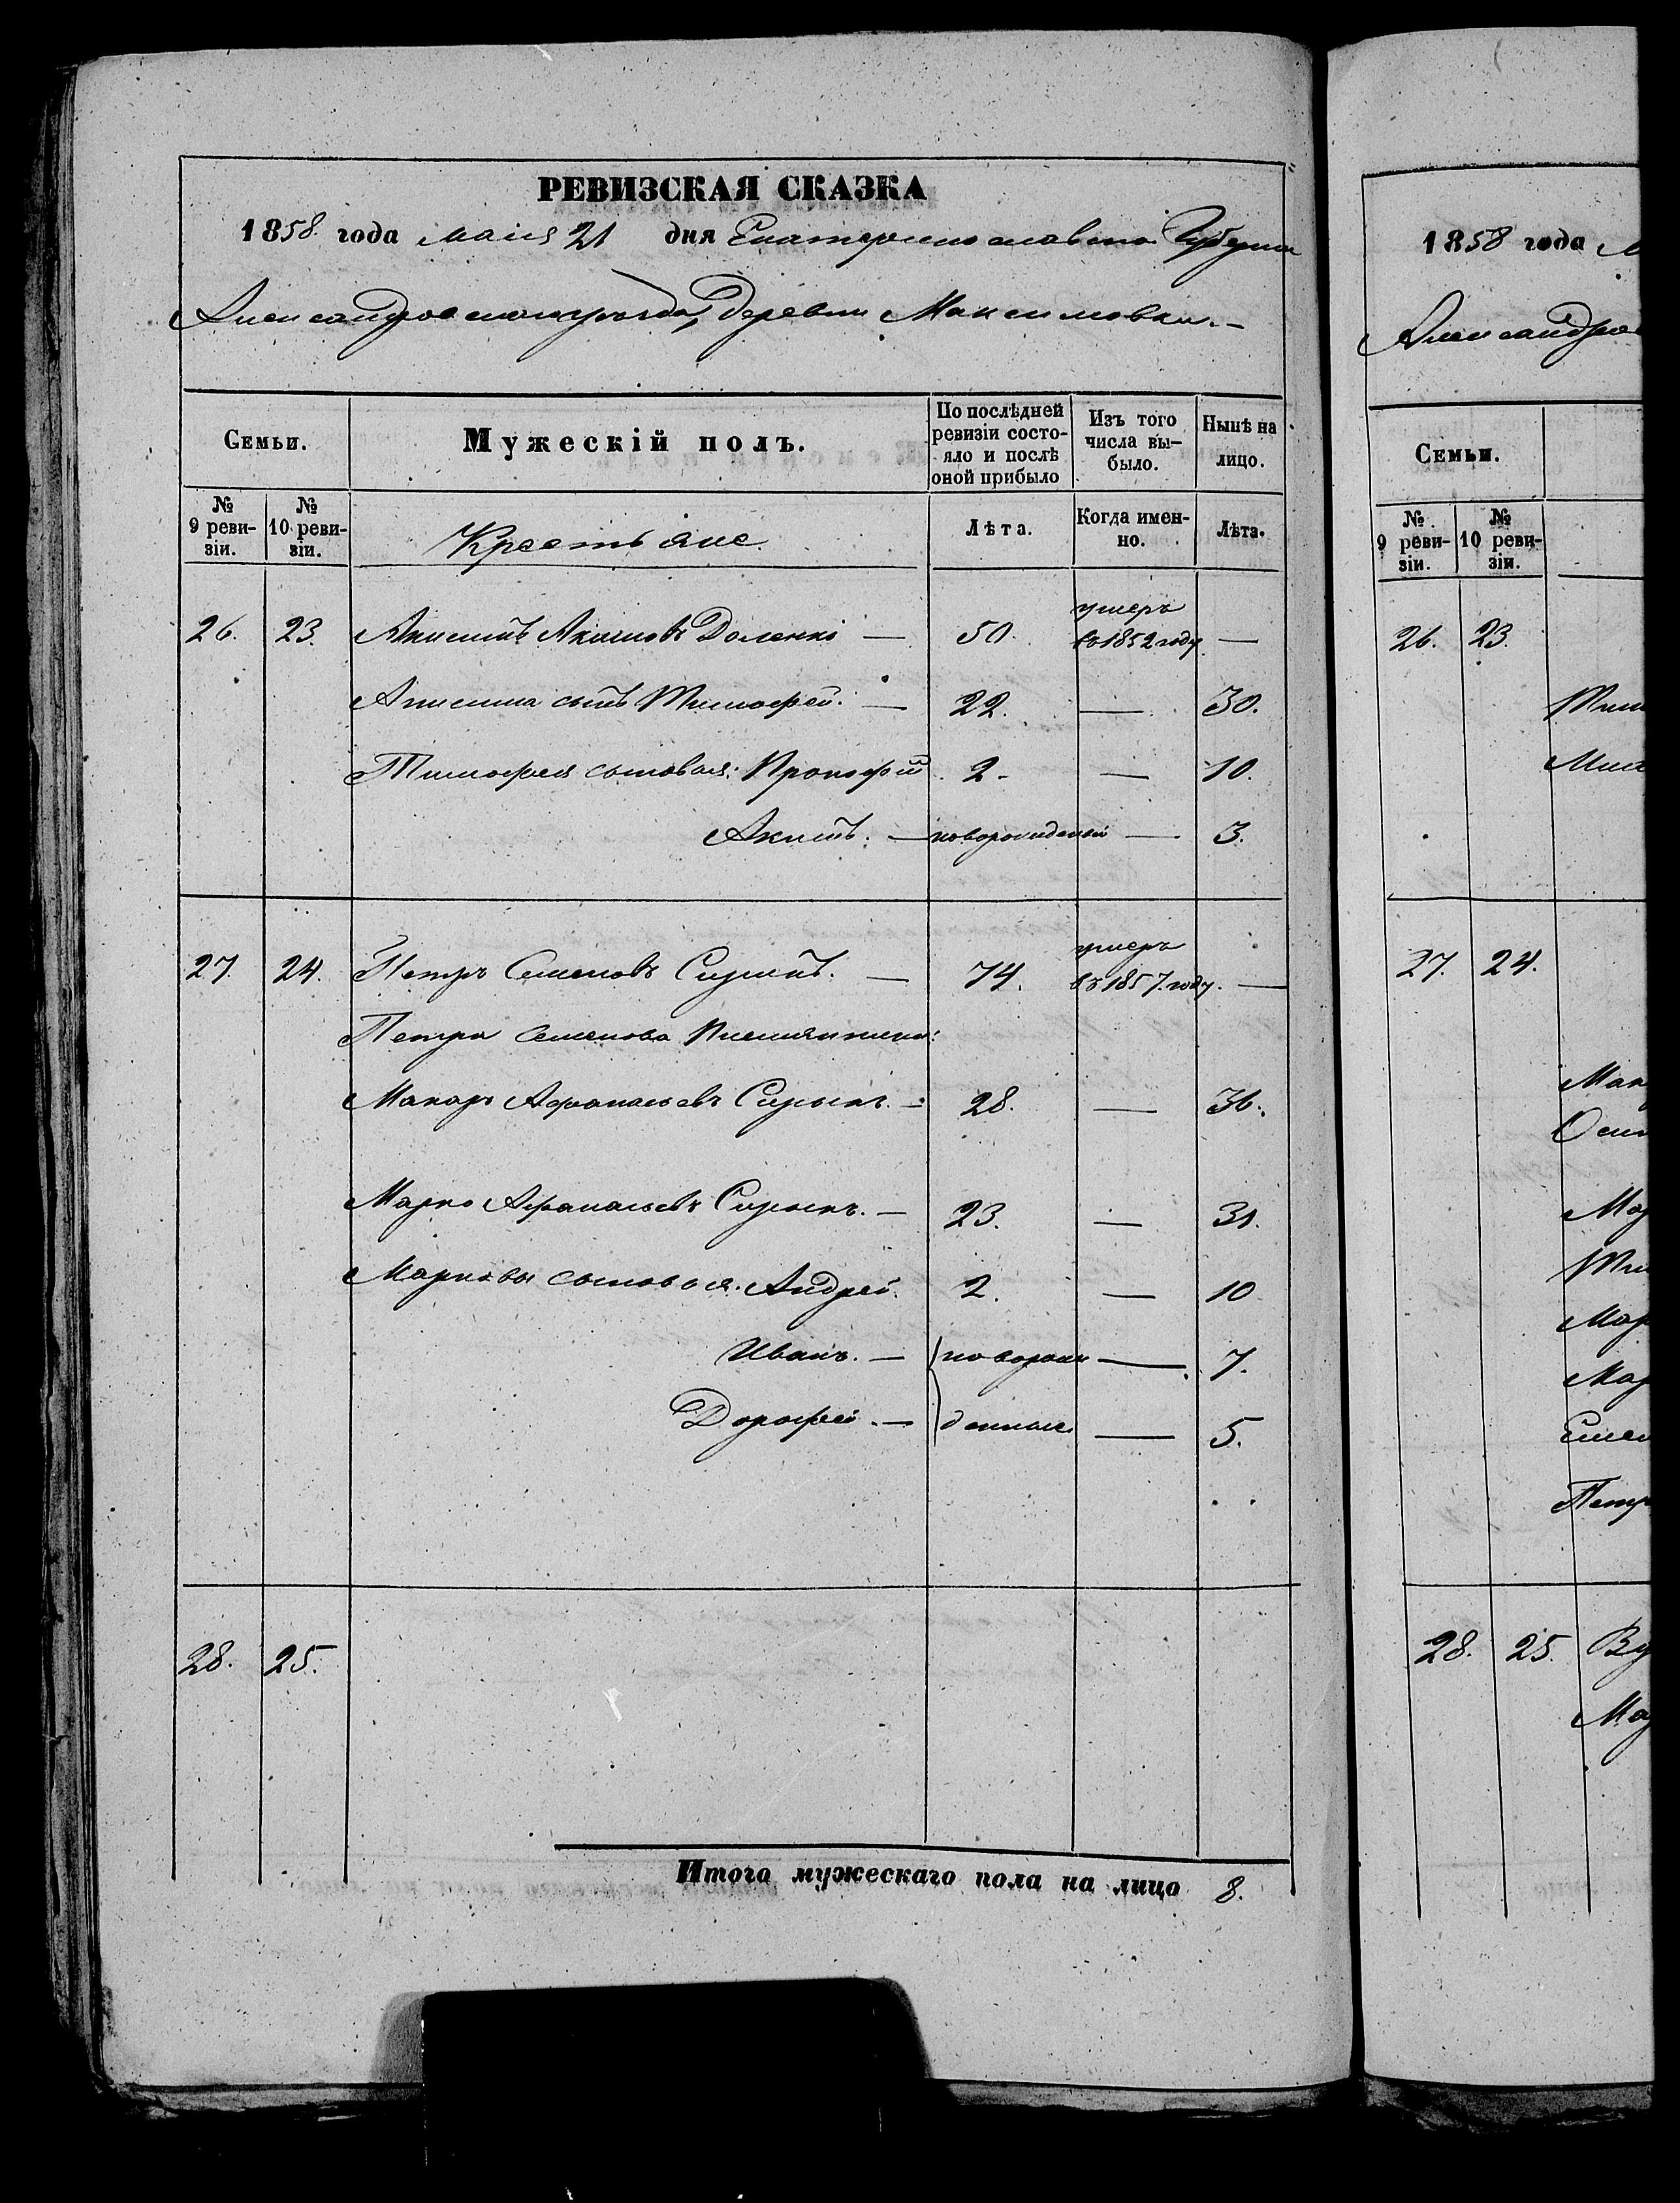 РЕВИЗСКАЯ СКАЗКА
1858 года маія 21 дня Екатеринославской Губерніи
Александровскаго уѣзда, Деревни Максимовки.
Семьи.
Мужескій полъ.
По послѣдней ревизіи состояло и послѣ оной прибыло
Изъ того числа выбыло.
Нынѣ на лицо.
№ 9 ревизіи.
№ 10 ревизіи.
Крестьяне
Лѣта.
Когда именно.
Лѣта.
26. 23. Акимовъ Доленко — 50. умеръ въ 1852 году —
сынъ Тимофей. — 22. — 30.
Тимофея сыновья: Прокофій 2. — 10.
Акимъ. — новорожденный — 3.
27. 24. Петръ Семеновъ — 74. умеръ въ 1857. году. —
Петра Семенова племянники:
Макаръ Афанасьевъ — 28. — 36.
Марко Афанасьевъ — 23. — 31.
Марковы сыновья: Андрей. 2. — 10
Иванъ. — новорож — 7.
Дорофей. — денные — 5.
28. 25.
Итого мужескаго пола на лицо 8.
1858 года
Семьи.
№ 9 ревизіи.
№ 10 ревизіи.
26. 23.
27. 24.
28. 25.